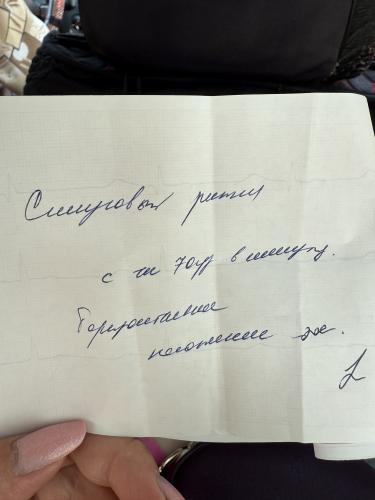 Синусовый ритм
с чсс 70уд в минуту.
Горизонтальное
положение эос.